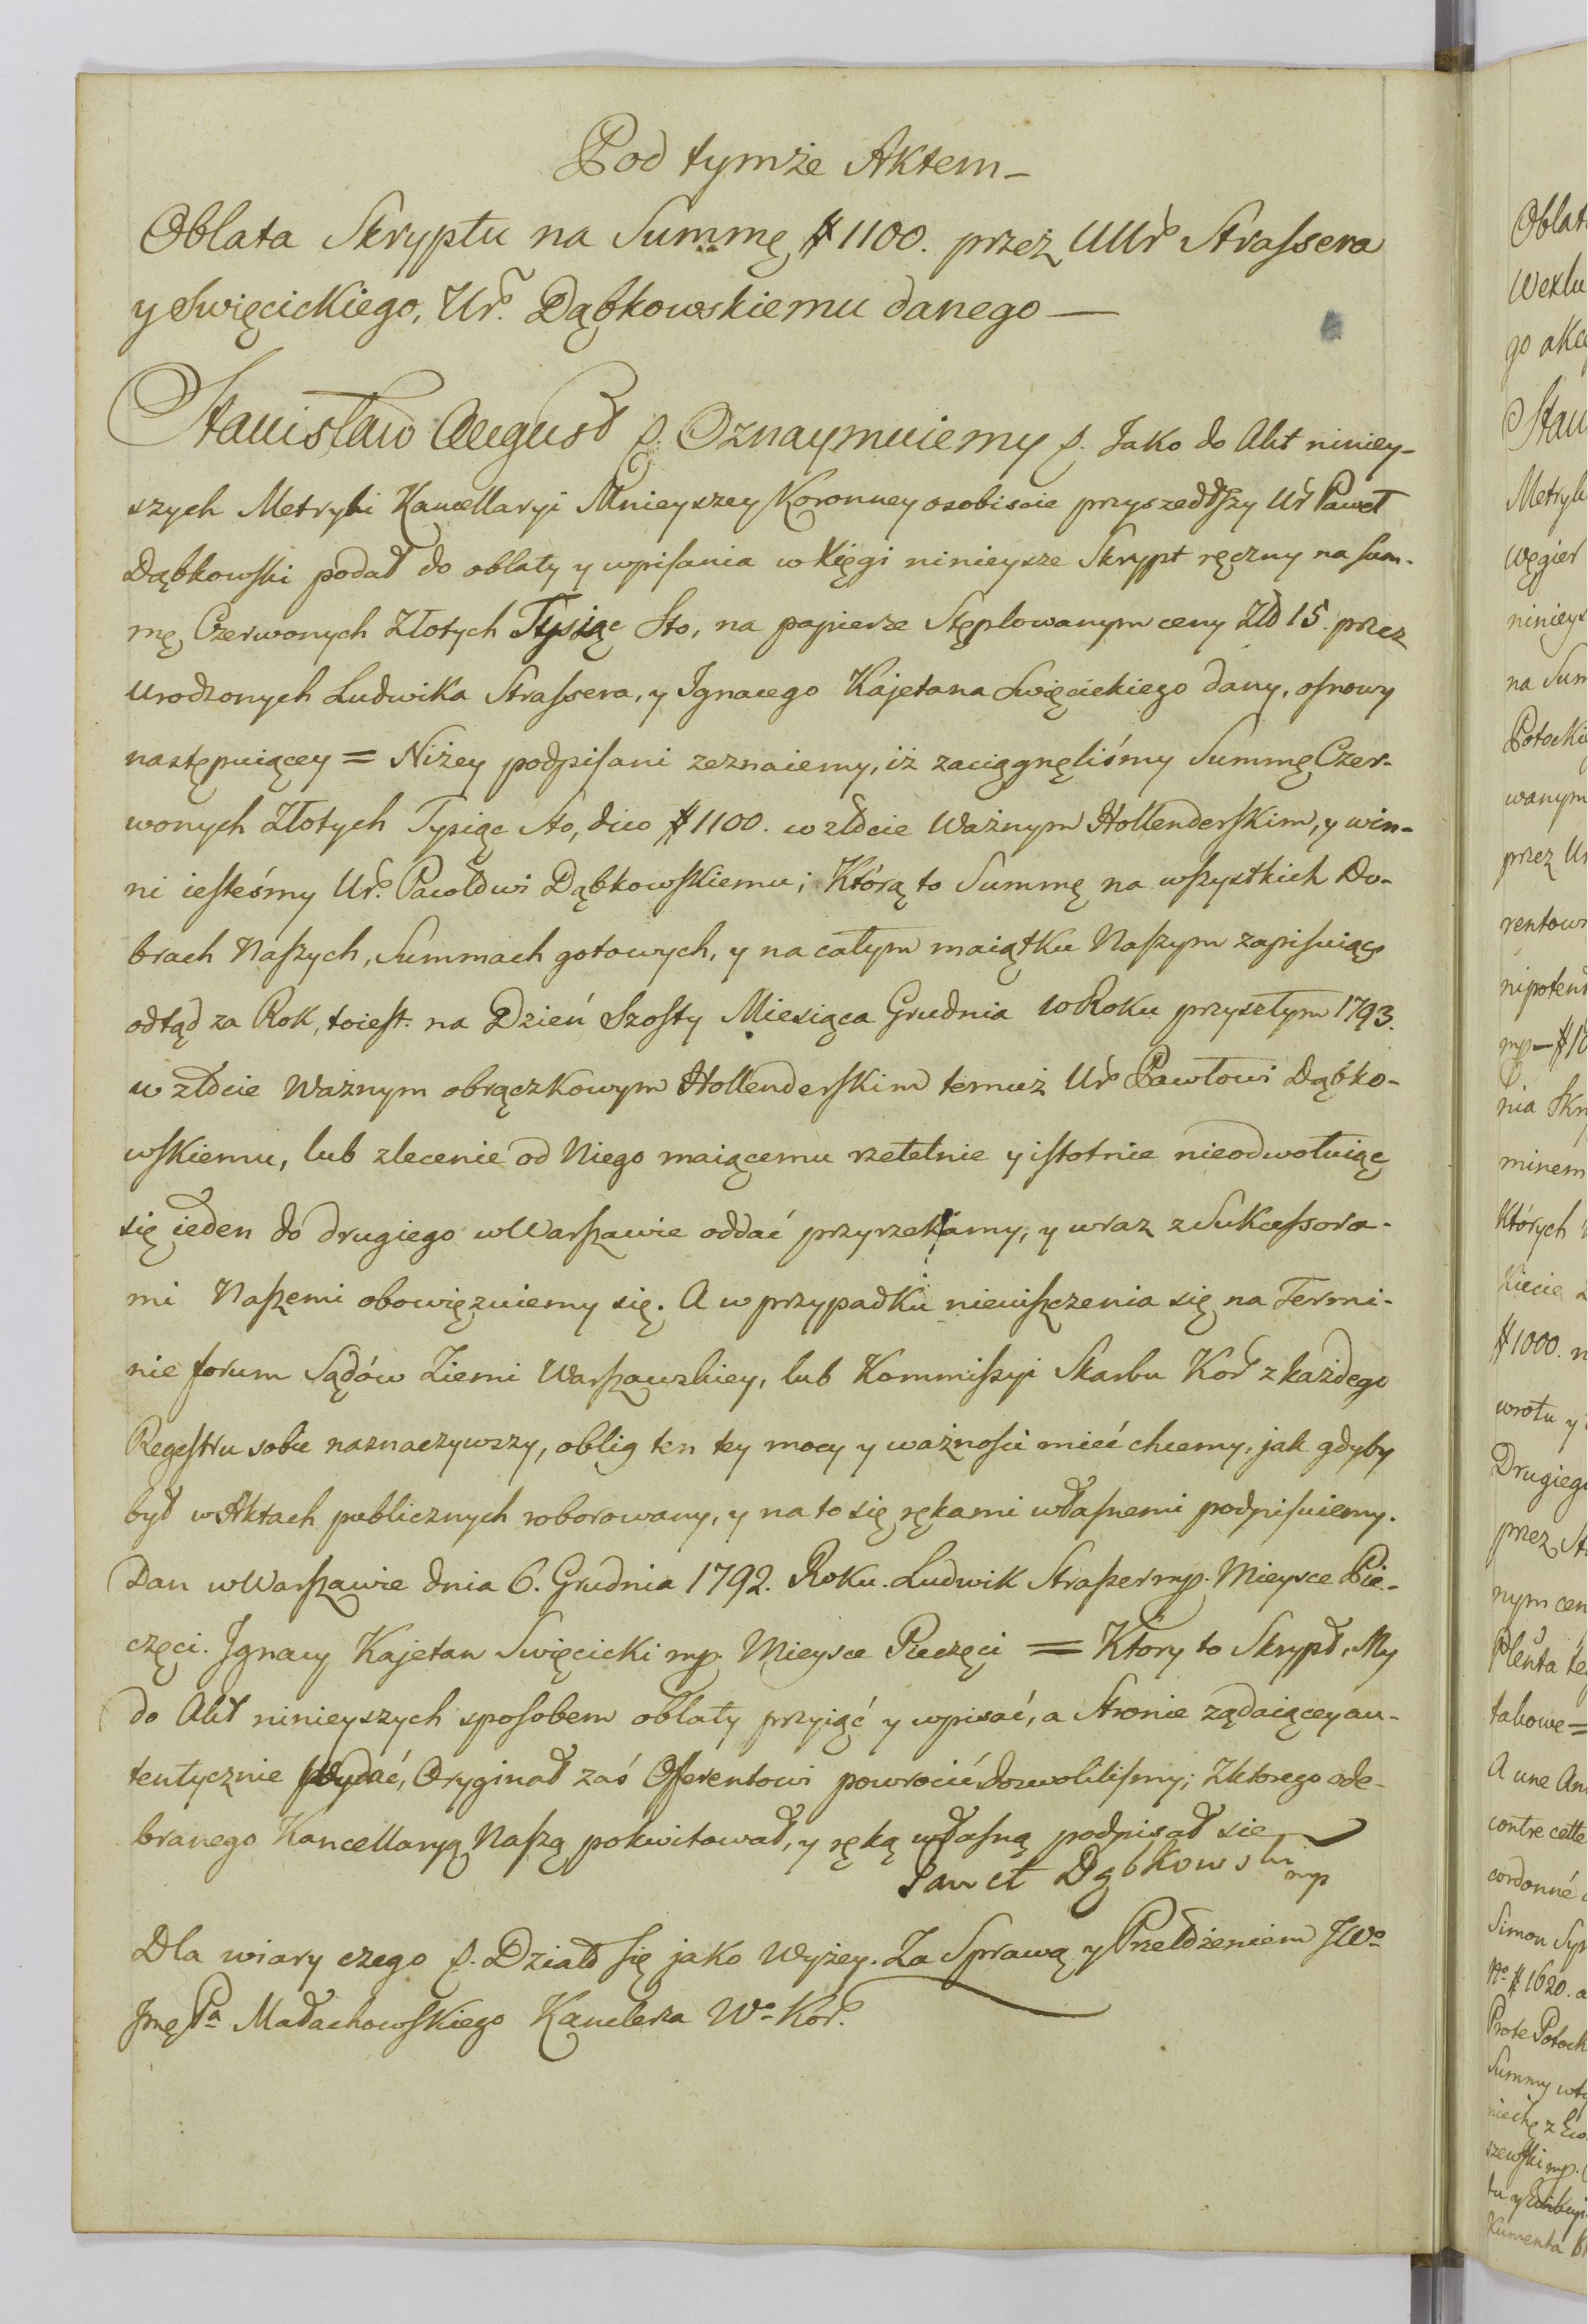 Pod tymże Aktem —
Oblata Skryptu na Summę # 1100. przez UUr. Straſsera
y Swięcickiego, Ur. Dąbkowskiemu danego —
Stanisław August p. Oznaymuiemy p. Jako do Akt niniey-
szych Metryki Kancellaryi Mnieyszey Koronney osobiscie przyszedłſzy Ur Paweł
Dąbkowſki podał do oblaty y wpiſania w Xięgi ninieysze Skrypt ręczny na ſum-
mę Czerwonych Złotych Tysiąc Sto, na papierze Stęplowanym ceny Złł 15. przez
Urodzonych Ludwika Straſsera, y Ignacego Kajetana Swięcickiego dany, oſnowy
następuiącey = Niżey podpiſani zeznaiemy, iż zaciągnęliśmy Summę Czer-
wonych Złotych Tysiąc Sto, dico # 1100. w złocie Ważnym Hollenderſkim, y win-
ni ieſteśmy Ur. Pawłowi Dąbkowſkiemu; Którą to Summę na wſzystkich Do-
brach Naſzych, Summach gotowych, y na całym maiątku Naſzym zapiſuiąc
odtąd za Rok, toieſt. na Dzień Szoſty Miesiąca Grudnia w Roku przyszłym 1793.
w złocie Ważnym obrączkowym Hollenderſkim temuż Ur. Pawłowi Dąbko-
wſkiemu, lub zlecenie od Niego maiącemu rzetelnie y iſtotnie nieodwołuiąc
się ieden do drugiego w Warſzawie oddać przyrzekamy, y wraz z Sukceſsora-
mi Naſzemi obowięzuiemy się. A w przypadku nieuiſzczenia się na Termi-
nie forum Sądów Ziemi Warſzawskiey, lub Kommiſsyi Skarbu Kor z każdego
Regeſtru sobie naznaczywszy, oblig ten tey mocy y ważności mieć chcemy, jak gdyby
był w Aktach publicznych roborowany, y na to się rękami właſnemi podpiſuiemy.
Dan w Warſzawie dnia 6. Grudnia 1792. Roku. Ludwik Straſser mp. Mieysce Pie-
częci. Ignacy Kajetan Swięcicki mp. Mieysce Pieczęci = Ktory to Skrypt, My
do Akt ninieyszych spoſobem oblaty przyiąć y wpisać, a Stronie żądaiącey au-
tentycznie wydać, Oryginał zaś Offerentowi powrocić dozwoliliſmy; Z ktorego ode-
branego Kancellaryą Naſzą pokwitował, y ręką właſną podpisał sie
Paweł Dąbkowski mp
Dla wiary czego p. Działo się jako Wyżey. Za Sprawą y Przełożeniem JWo
Jmę Pa Małachowſkiego Kanclerza Wo Kor.
Oblat
Wexlu
go akc
Stan
Metryk
Węgier
ninieys
na Sum
Potocki
wanym
przez Ur
rentowi
nipotent
mp — # 10
nia Skr
minem
Których
# 1000.
wrotu y
Drugiego
przez St
nym cen
takowe =
A une An
contre cette
cordonné
Simon Syr
No # 1620. a
Prote Potock
Summy wty